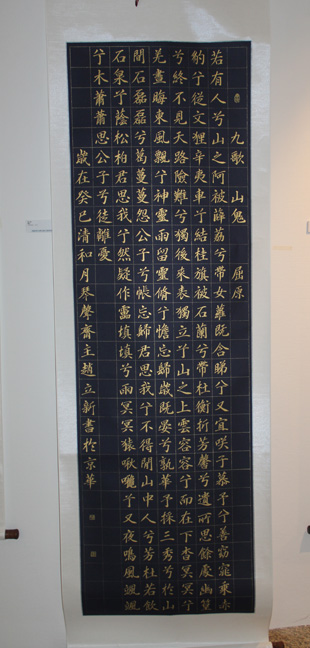 九歌 山鬼 屈原
若有人兮山之阿被薜荔兮帶女蘿既含睇兮又宜咲子慕予兮善窈窕乘赤
豹兮從文狸辛夷車兮結桂旗被石蘭兮帶杜衡折芳馨兮遺所思餘處幽篁
兮終不見天路險難兮獨後來表獨立兮山之上雲容容兮而在下杳冥冥兮
羌晝晦東風飄兮神靈雨留靈脩兮憺忘歸歲既晏兮孰華予採三秀兮於山
間石磊磊兮葛蔓蔓怨公子兮悵忘歸君思我兮不得閒山中人兮芳杜若飲
石泉兮蔭松柏君思我兮然疑作靁填填兮雨冥冥猿啾啾兮又夜鳴風颯颯
兮木蕭蕭思公子兮徒離憂
歲在癸巳清和月琴聲齋主趙立新書於京華